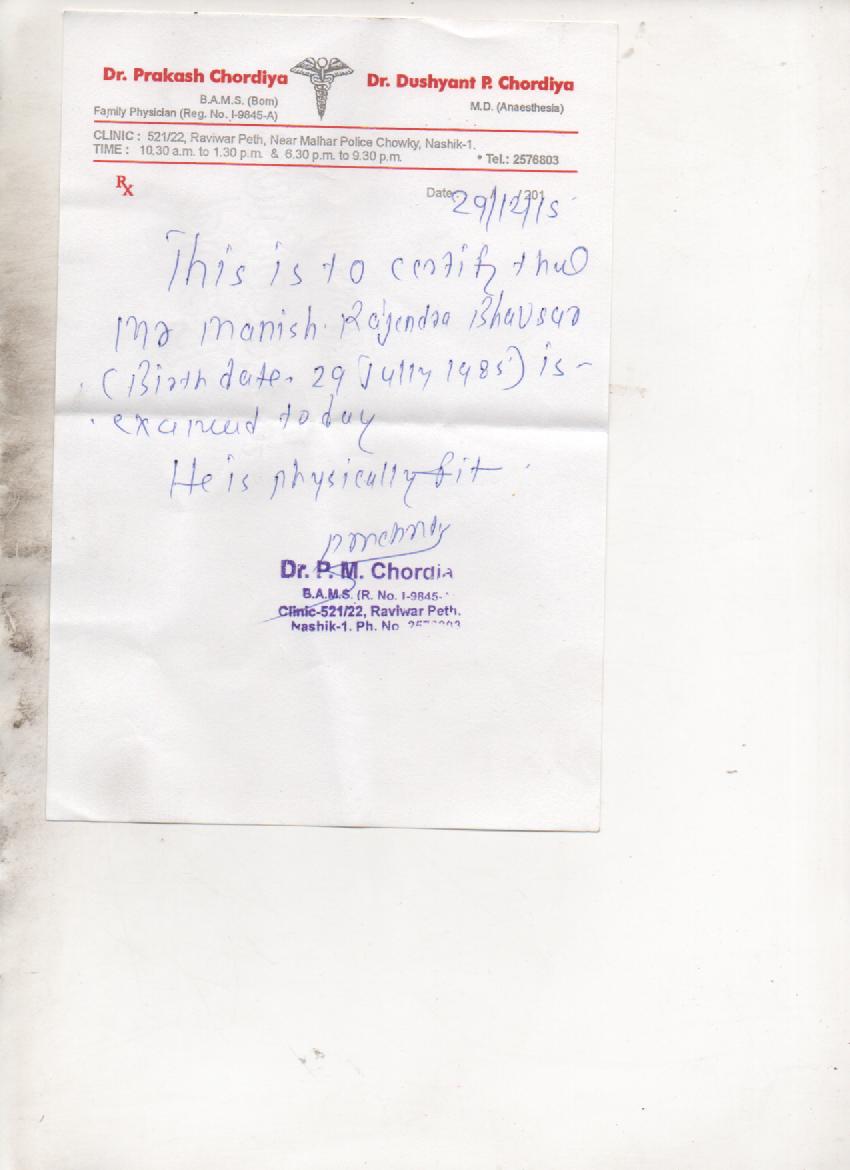 Dr. Prakash Chordiya
B.A.M.S. (Bom)
Family Physician (Reg. No. I-9845-A)
Dr. Dushyant P. Chordiya
M.D. (Anaesthesia)
CLINIC : 521/22, Raviwar Peth, Near Malhar Police Chowky, Nashik-1.
TIME : 10.30 a.m. to 1.30 p.m. & 6.30 p.m. to 9.30 p.m. * Tel.: 2576803
Rx
Date 29/12/15 /201
This is to certify that
Mr Manish. Rajendra Bhavsar
(Birth date. 29 Jully 1985) is -
examined today
He is physically fit
Dr. P. M. Chordia
B.A.M.S. (R. No. I-9845-
Clinic-521/22, Raviwar Peth.
Nashik-1. Ph. No.